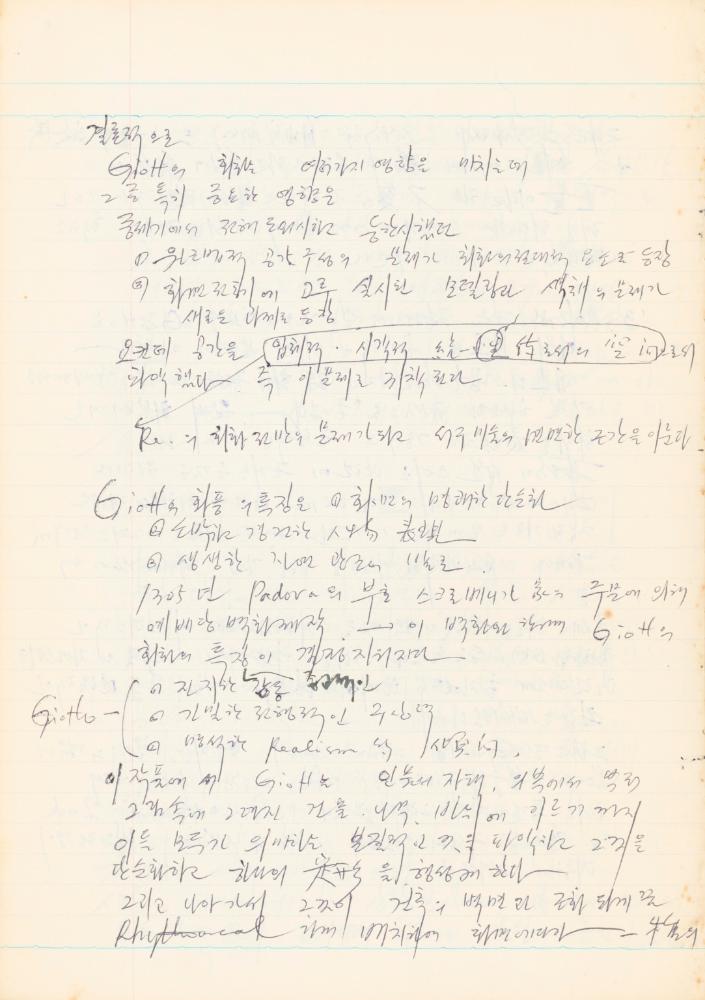 결론적으로
Giotto의 회화는 여러가지 영향을 미치는데
그 중 특히 중요한 영향은
중세기에서 전혀 도외시하고 등한시했던
① 원근법적 공간구성의 문제가 회화의 절대적 요소로 등장
② 화면전체에 고루 실시된 모델링과 색채의 문제가
새로운 과제로 등장
요컨데 공간을 입체적·시각적 統一 로서의
파악했다 즉 이 문제로 귀착된다
Re.의 회화 전반의 문제가 되고 서구미술의 면면한 근간을 이룬다
Giotto의 화풍의 특징은 ① 화면의 명쾌한 단순화
② 소박하고 경건한 人物 表現
③ 생생한 자연 관조의
1305년 Padova의 부호 스크로베니가 家의 주문에 의해
예배당 벽화제작 → 이 벽화와 함께 Giotto의
회화의 특징이 결정지워진다
① 진지한 감동
Giotto ② 긴밀한 전형적인 구상력
③ 명석한 Realism 的
이 작품에서 Giotto는 인물의 자태, 의복에서 부터
그림 속에 그려진 건물, 나무, 바위에 이르기까지
이들 모두가 의미하는 본질적인 것을 파악하고 그것을
단순화하고 하나의 을 형성케 한다
그리고 나아가서 그것이 건축의 벽면과 조화되게끔
Rhythmical 하게 배치하여 화면에다가